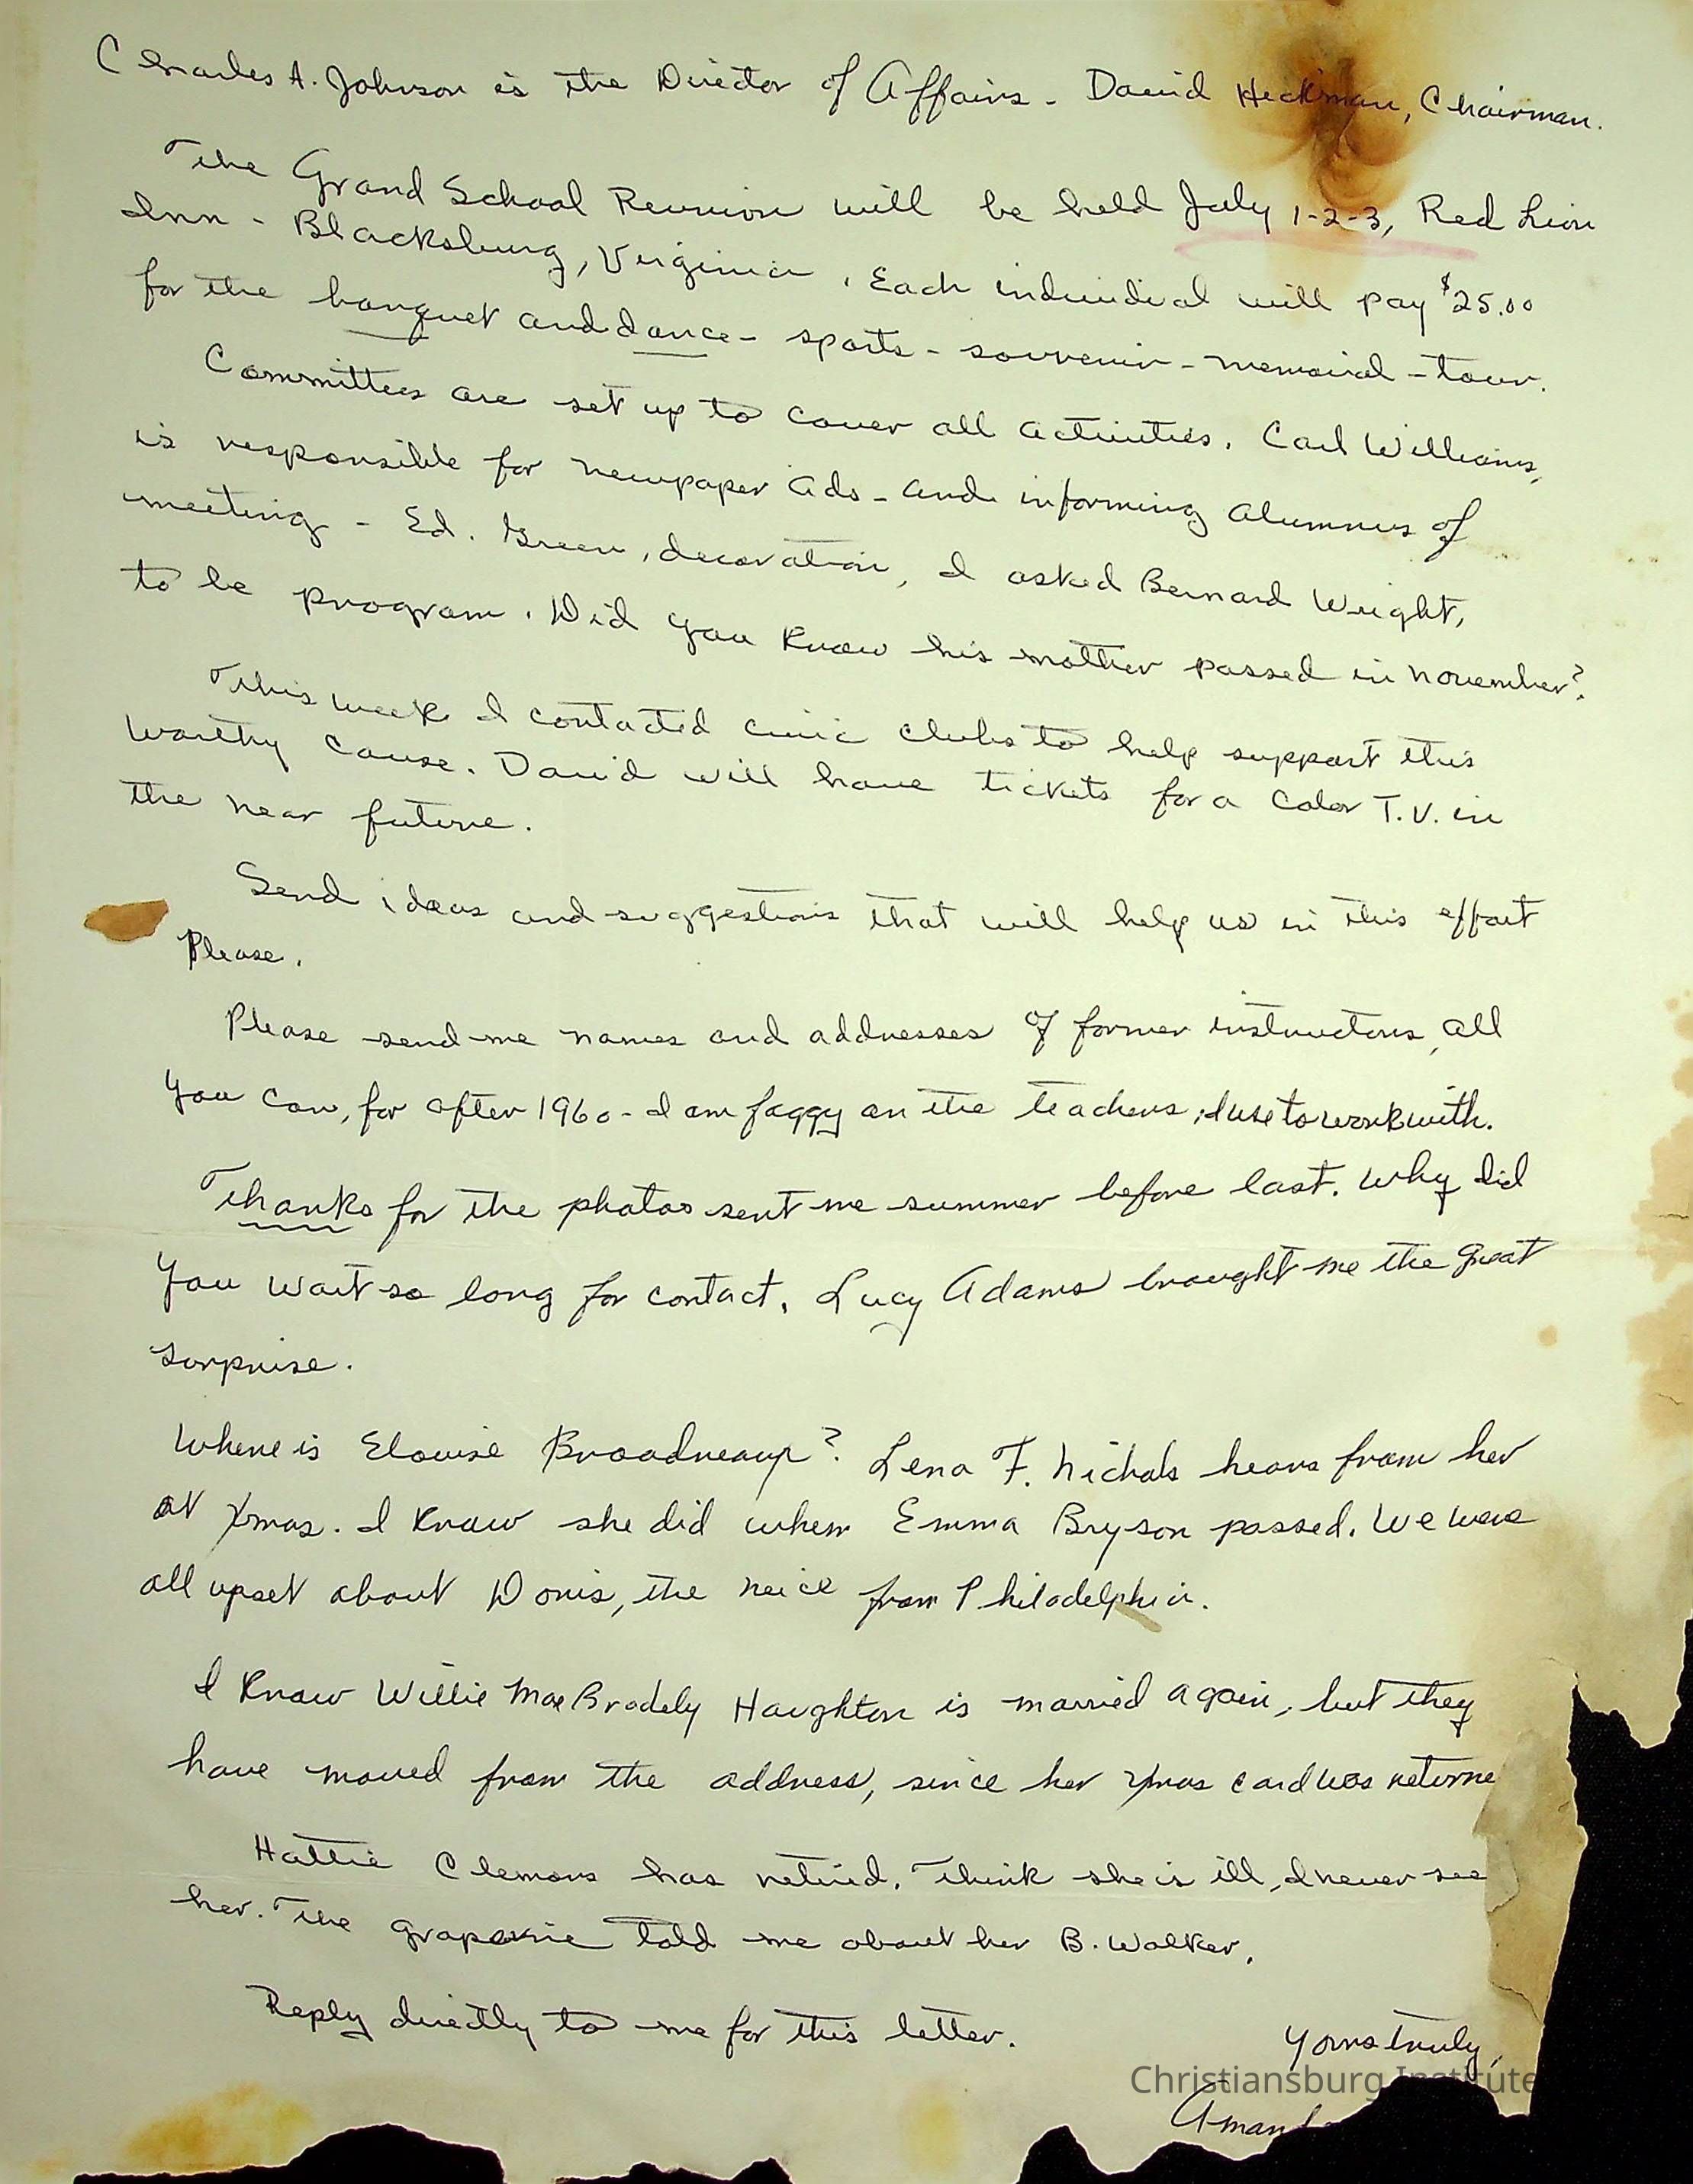 Charles A. Johnson is the Director of Affairs - David Heckman, Chairman.
The Grand School Reunion will be held July 1-2-3, Red Lion
Inn - Blacksburg, Virginia. Each individual will pay $25.00
for the banquet and dance - sports - souvenir - memorial - tour.
Committees are set up to cover all activities. Carl Williams,
is responsible for newpaper ads - and informing alumnus of
meeting - Ed. Green, decoration, I asked Bernard Wright,
to be program. Did you know his mother passed in November?
This week I contacted civic clubs to help support this
worthy cause. David will have tickets for a color T.V. in
the near future.
Send ideas and suggestions that will help us in this effort
Please.
Please send me names and addresses of former instructors, all
you can, for after 1960 - I am foggy on the teachers, I use to work with.
Thanks for the photos sent me summer before last. Why did
you wait so long for contact. Lucy Adams brought me the great
surprise.
Where is Elouise Broadneaux? Lena F. Nichols hears from her
at Xmas. I know she did when Emma Bryson passed. We were
all upset about Doris, the neice from Philadelphia.
I know Willie Mae Brodely Haughton is married again, but they
have moved from the address, since her Xmas card was returne
Hattie Clemons has retired. Think she is ill, I never see
her. The grapevine told me about her B. Walker.
Reply directly to me for this letter.
Yours truly,
Christiansburg Institute
Aman